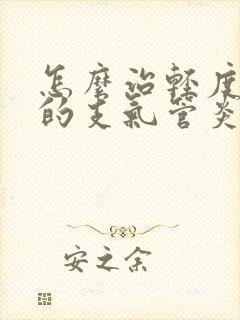 怎麼治輕度
的支氣管炎
安之余